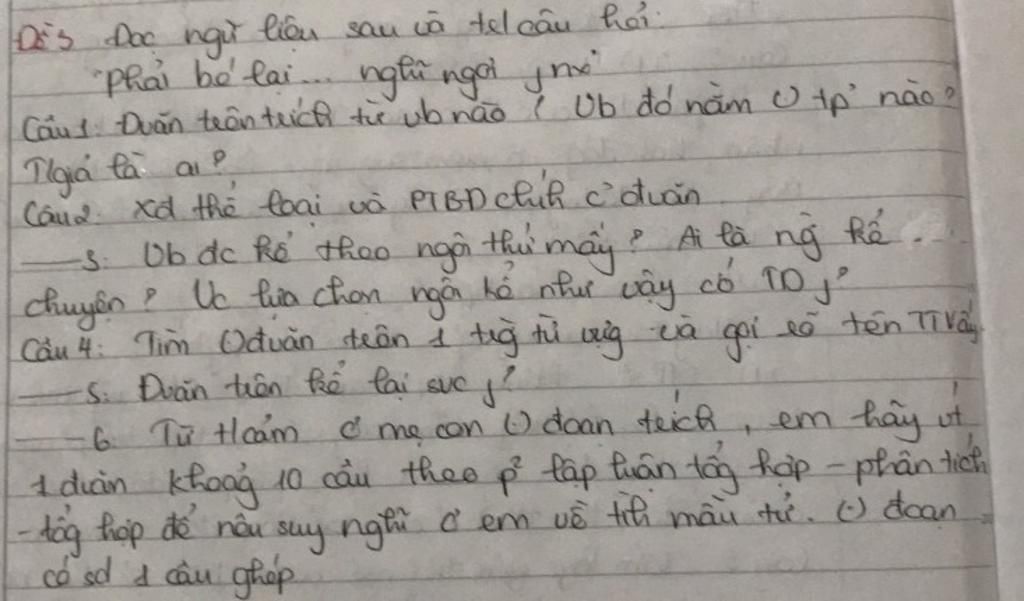 Đề 3 Đọc ngữ liệu sau và trl câu hỏi:
"Phải bé lại... nghĩ ngợi j nx"
Câu 1: Đvăn trên trích từ vb nào? Vb đó nằm () tp' nào?
Tlgiả là ai?
Câu 2. Xđ thể loại và PTBĐ chính c' đvăn
—— 3. Vb đc kể theo ngôi thứ mấy? Ai là ng kể.
chuyện? Vc lựa chọn ngôi kể như vậy có TD j?
Câu 4: Tìm () đvăn trên 1 trg từ vựng và gọi rõ tên TTV ấy
—— 5. Đvăn trên kể lại sự vc j?
—— 6. Từ t/cảm c' mẹ con (.) đoạn trích, em hãy vt
1 đvăn khoảng 10 câu theo p² lập luận tổng hợp - phân tích
- tổg hợp để nêu suy nghĩ c' em về tình mẫu tử. (.) đoạn
có sd 1 câu ghép